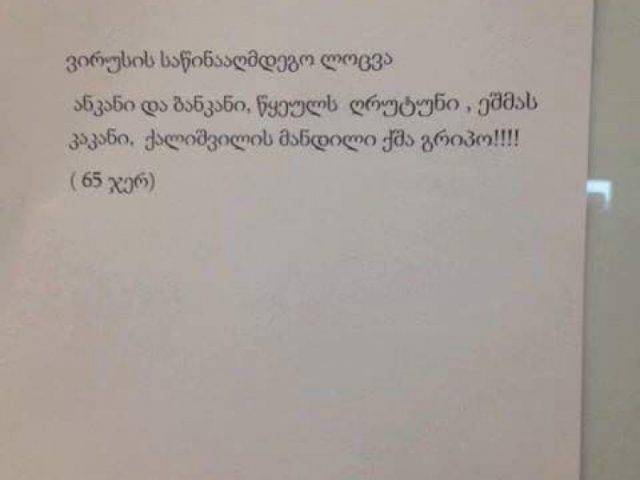 ვირუსის საწინააღმდეგო ლოცვა
ანკანი და ბანკანი, წყეულს ღრუტუნი , ეშმას
კაკანი, ქალიშვილის მანდილი ქშა გრიპო!!!!
( 65 ჯერ)